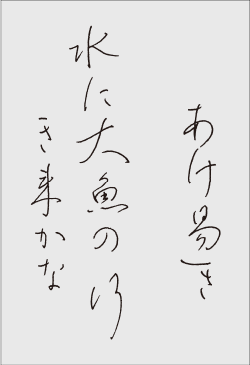 あけ易き
水に大魚の行
き来かな